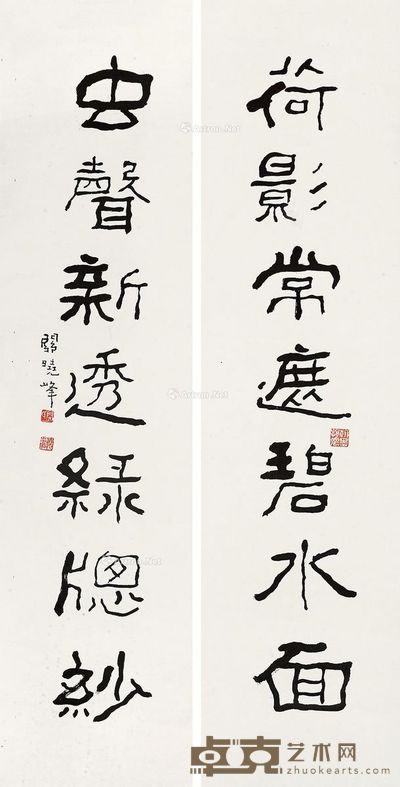 荷影常遮碧水面
虫聲新透綠牕紗
關曉峰
Artron.Net
卓克艺术网
zhuokearts.com